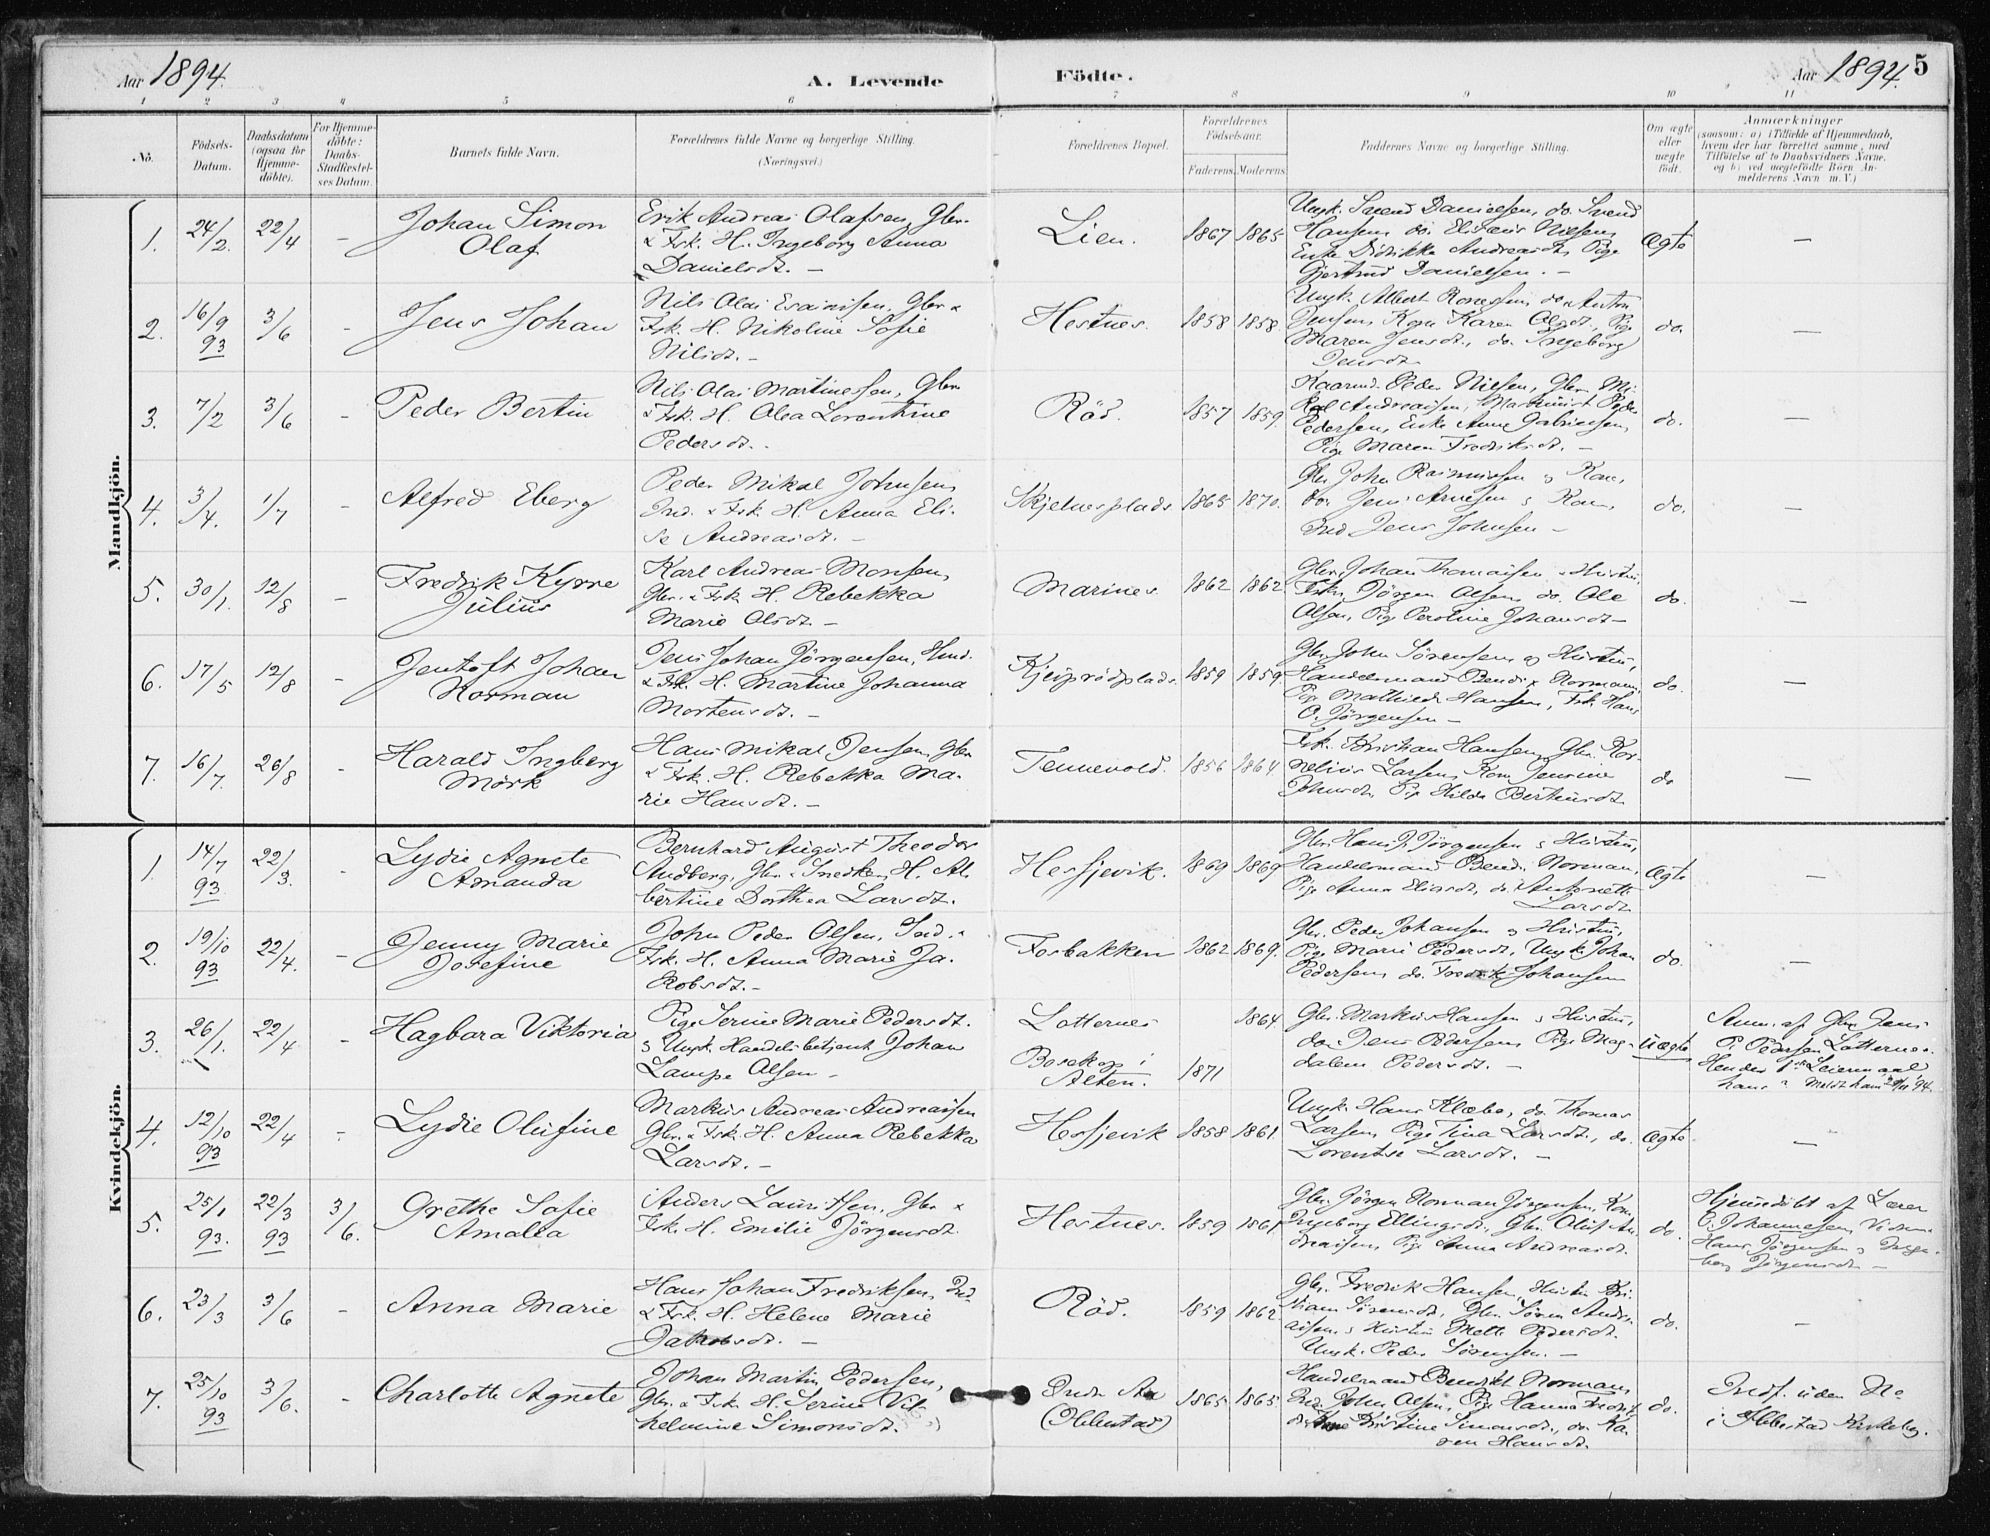 Aar 1894. A. Levende Födte. Aar 1894. 5
1 2 3 4 5 6 7 8 9 10 11
No. Födsels-Datum. Daabsdatum (ogsaa for Hjemme-döbte). For Hjemme-döbte: Daabs-Stadfæstel-ses Datum. Barnets fulde Navn. Forældrenes fulde Navne og borgerlige Stilling. (Næringsvei.) Forældrenes Bopæl. Forældrenes Födselsaar. Faderens. Moderens. Faddernes Navne og borgerlige Stilling. Om ægte eller uægte födt. Anmærkninger
(saasom: a) i Tilfælde af Hjemmedaab,
hvem der har forrettet samme, med
Tilföielse af to Daabsvidners Navne,
og b) ved uægtefödte Börn An-
melderens Navn m.V.)
Mandkjön.
1. 24/2. 22/4 – Johan Simon
Olaf
Erik Andreas Olafsen, Gbr.
& Fsk. H. Ingeborg Anna
Danielsdt. –
Lien. 1867 1865
Ungk. Svend Danielsen, do. Svend
Hansen, do. Nielsen,
Enke Didrikke Andreasdt, Pige
Gjertrud Danielsen. –
Ægte –
2. 16/9 93 3/6 – Jens Johan
Nils Olai Esaissen, Gbr. &
Fsk. H. Nikoline Sofie
Nilsdt. –
Hestnes. 1858 1858.
Ungk. Albert do. Anton
Jensen, Kone Karen Olsdt., Pige
Maren Jensdt., do. Ingeborg
Jensdt.
do. –
3. 7/2 3/6 – Peder Bertin
Nils Olai Martinessen, Gbr.
& Fsk. H. Olea Lorentine
Pedersdt. –
Röd. 1857 1859.
Kaarmd. Peder Nielsen, Gbr. Mi-
kal Andreassen, Maskinist Peder
Pedersen, Enke Anne Gabrielsen,
Pige Maren Fredriksdt. –
do. –
4. 3/4. 1/7 – Alfred Eberg
Peder Mikal Johnsen,
Ind. & Fsk. H. Anna Eli-
se Andreasdt. –
Skjelnesplads. 1865 1870.
Gbr. John Rasmussen & Kone,
do. Jens Arnesen & Kone,
Ind. Jens Johnsen –
do. –
5. 30/1. 12/8 – Fredrik Kyrre
Julius
Karl Andreas Monsen,
Gbr. & Fsk. H. Rebekka
Marie Olsdt. –
Marines. 1862 1862
Gbr. Johan Thomassen & Hustru,
Fsk. Jörgen Olsen, do. Ole
Olsen, Pige Peroline Johansdt –
do. –
6. 17/5 12/8 – Jentoft Johan
Norman
Jens Johan Jörgensen, Ind.
& Fsk. H. Martine Johanna
Mortensdt. –
1859 1859.
Gbr. John Sörensen og Hustru,
Handelsmand Bendix Normann,
Pige Mathilde Hansen, Fsk. Hans
O. Jörgensen –
do. –
7. 16/7. 26/8 – Harald Ingberg
Mörk
Hans Mikal Jensen, Gbr.
& Fsk. H. Rebekka Ma-
rie Hansdt. –
Tennevold. 1856 1864.
Fsk. Kristian Hansen, Gbr. Kor-
nelius Larsen, Kone Jensine
Johnsdt, Pige Hilda Bertinsdt
do –
Kvindekjön.
1. 14/7 93. 22/3. – Lydie Agnete
Amanda
Bernhard August Theodor
Andberg, Gbr. & Snedker, H. Al-
bertine Dorthea Larsdt.
Hesjevik. 1869 1869
Gbr. Hans P. Jörgensen & Hustru,
Handelsmand Bend. Norman,
Pige Anna Eliasdt, do. Antonette
Larsdt
Ægte –
2. 19/10 93 22/4. – Jenny Marie
Josefine
John Peder Olsen, Ind. &
Fsk. H. Anna Marie Ja-
kobsdt. –
Forbakken 1862 1869.
Gbr. Peder Johansen og Hustru,
Pige Marie Pedersdt, Ungk. Johan
Pedersen, do. Fredrik Johansen
do. –
3. 26/1. 22/4 – Hagbara Viktoria
Pige Serine Marie Pedersdt.
& Ungk. Handelsbetjent Johan
Lampe Olsen –
Lotternes 1864.
Bosekop i
Alten. 1871
Gbr. Markus Hansen & Hustru,
do. Jens Pedersen, Pige Mag-
dalene Pedersdt. –
Uægte
Anm. af Gbr. Jens
P. Pedersen Lotternes.
Hendes 1ste Leiermaal
hans
4. 12/10 93 22/4 – Lydie Olufine
Markus Andreas Andreassen
Gbr. & Fsk. H. Anna Rebekka
Larsdt. –
Hesjevik 1858 1861.
Ungk. Hans Klæbo, do. Thomas
Larsen, Pige Tina Larsdt., do.
Lorentse Larsdt. –
Ægte –
5. 25/1 93. 22/3 93 3/6. Grethe Sofie
Amalia
Anders Lauritsen, Gbr. &
Fsk. H. Emilie Jörgensdt.
Hestnes. 1859 1861
Gbr. Jörgen Norman Jörgensen, Kone
Ingeborg Ellingsdt., Gbr. Oluf An-
dreassen, Pige Anna Andreasdt.
do.
Hjemmedöbt af Lærer
O. Johannesen, Vidner
Hans Jörgensen & Inge-
borg Jörgensdt –
6. 23/3 3/6 – Anna Marie
Hans Johan Fredriksen, Ind.
& Fsk. H. Helene Marie
Jakobsdt. –
Röd. 1859 1862
Gbr. Fredrik Hansen, Hustru Kri-
stiane Sörensdt., Gbr. Sören Andre-
assen & Hustru Mette Pedersdt.
Ungk. Peder Sörensen. –
do. –
7. 25/10 93 3/6. – Charlotte Agnete
Johan Martin Pedersen,
Gbr. & Fsk. H. Serine Vil-
helmine Simonsdt.
Indr. Aa
(Ibbestad) 1865 1865
Handelsmand Benedikt Norman,
Ind. John Olsen, Pige Hanna Fredrik-
Kristine Simonsdt., do. Ka-
ren Hansdt.
do.
Indf. uden No
i Ibbestad Kirkebog.